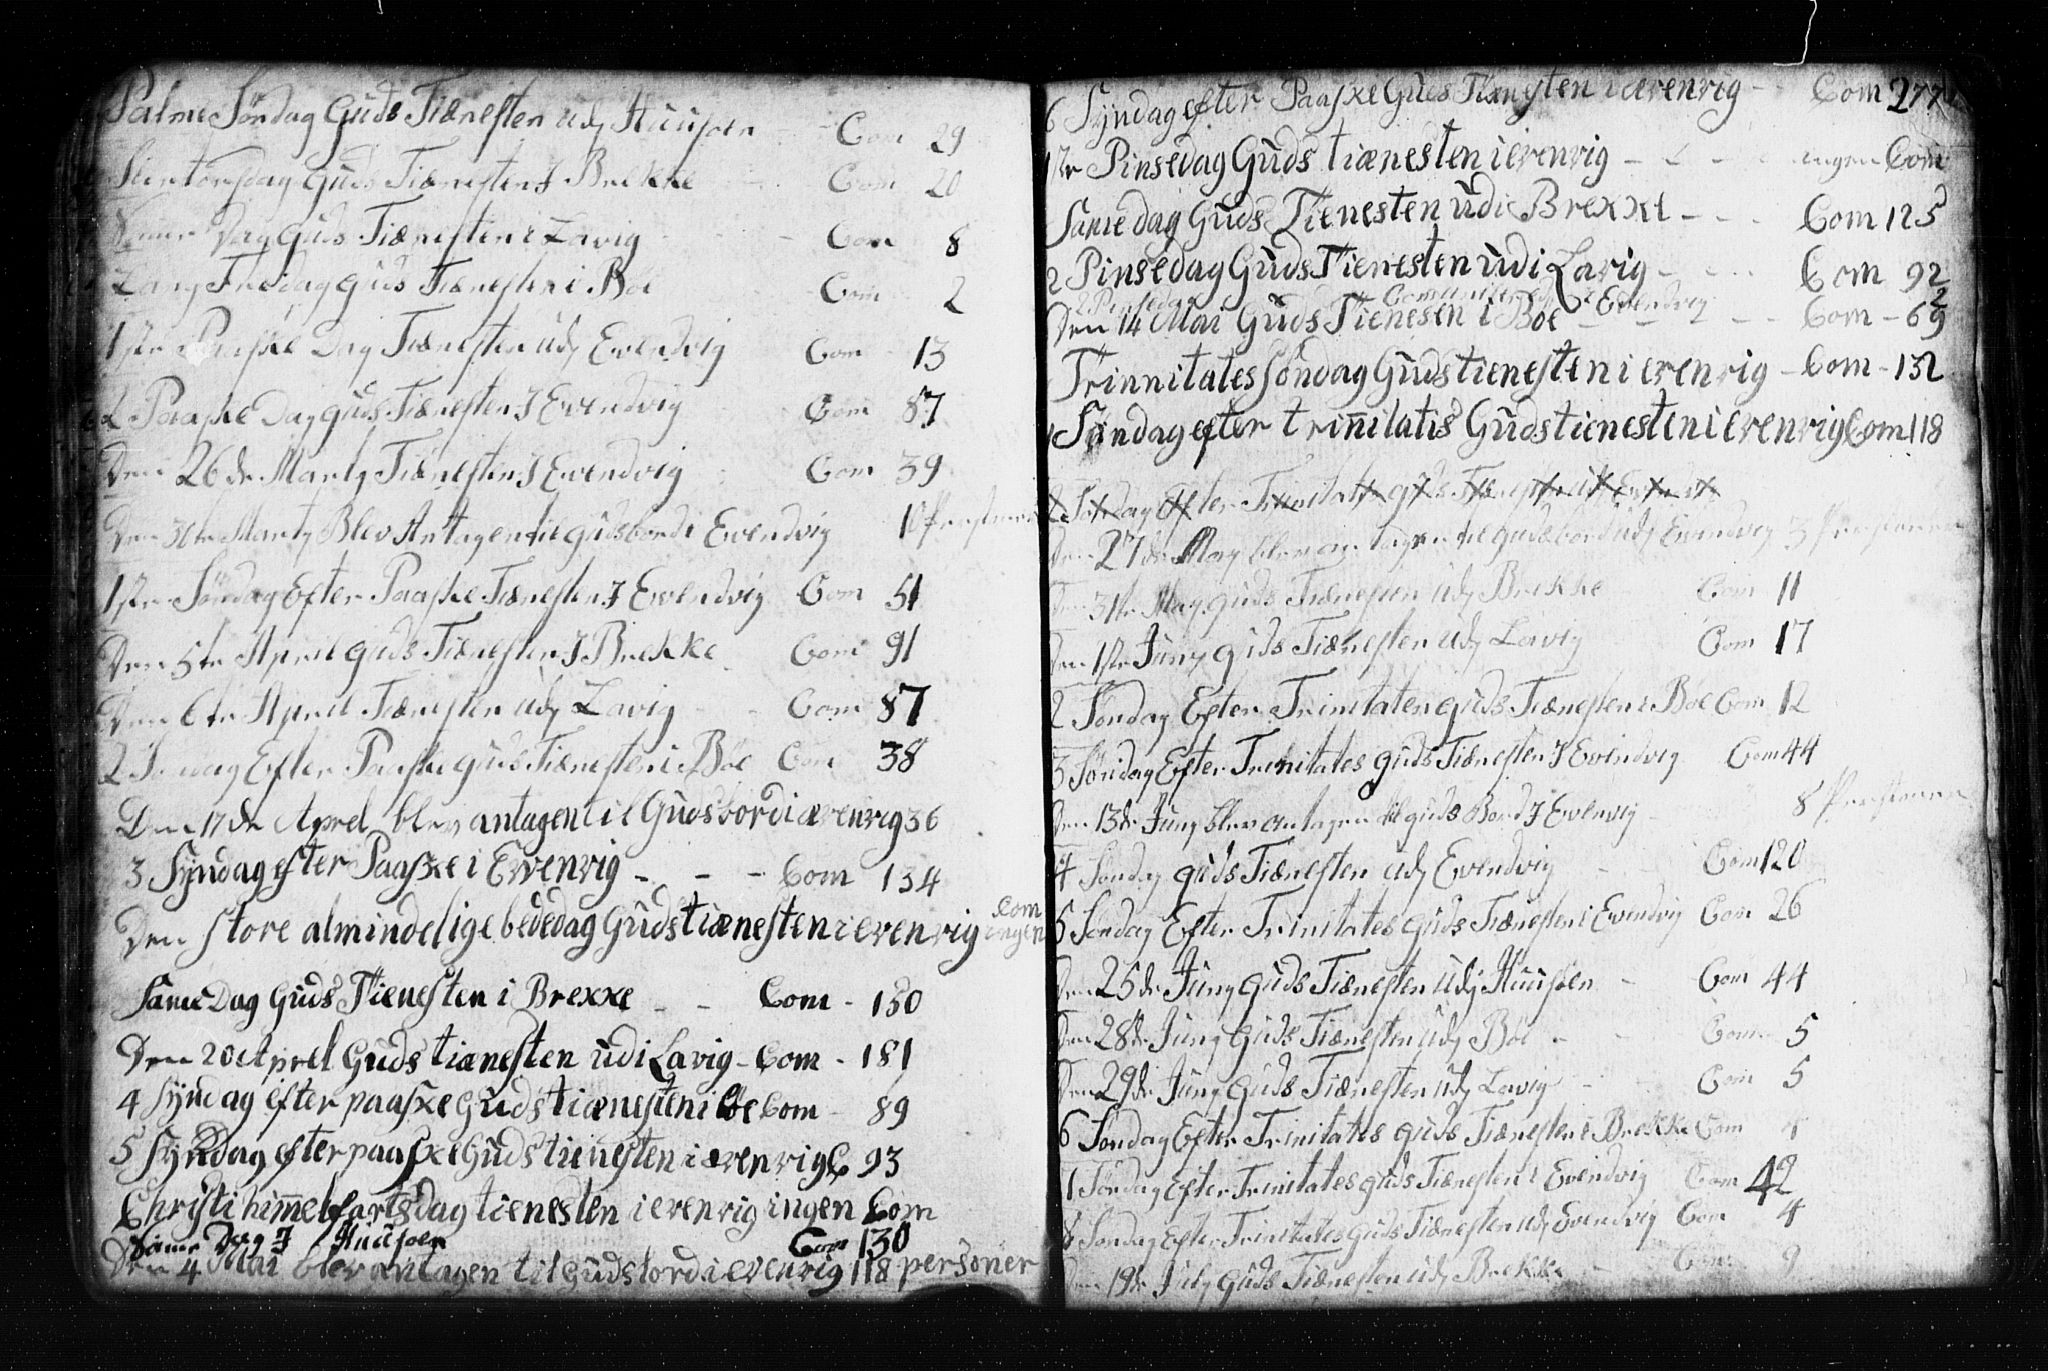 Palme Søndag Guds Tiænesten udj Huusøen - Com 29
Skiertorsdag Guds Tiænesten J Brekke - Com 20
Same Dag Guds Tiænesten i Lavig - Com 8
Lang Fredag Guds Tiænesten i Böe Com 2
1ste Paaske Dag Tiænesten udj Evendvig Com 13
2 Paaske Dag Guds Tiænesten J Evendvig Com 87
Den 26de Martj Tiænesten J Evendvig Com 39
Den Martj Blev Antagen til Gudsbord i Evendvig 1
1ste Søndag Efter Paaske Tiænesten J Evendvig Com 51
Den 5te April Guds Tiænesten J Brekke Com 91
Den 6te April Tiænesten udj Lavig - Com 87
2 Søndag Efter Paaske Guds Tiænesten i Böe Com 38
Den 17de Aprel blev antagen til Gudsbord i ævenvig 36
3 Syndag efter Paaske i Evenvig - - - Com 134
Den store almindelige bededag Guds tiænesten i evenvig Com ingen
Same Dag Guds Tienesten i Brekke - - Com - 150
Den 20 Aprel Guds tiænesten udi Lavig - Com - 181
4 Syndag efter paaske Guds tiænesten i Böe Com - 89
5 Syndag efter paaske Guds tienesten i ævenvig C 93
Christi himmelfartsdag tienesten i evenvig ingen Com
Same Dag J Huusøen Com 130
Den 4 Mai blev antagen til Guds bord i evenvig 118 personer
6 Syndag efter Paaske Guds Tiænesten i ævenvig - Com 277
1ste Pinsedag Guds tiænesten i evenvig - - - ingen Com
Same dag Guds Tienesten udi Brekke - - - Com 125
2 Pinsedag Guds Tienesten udi Lavig - - - Com 92
2 Pinsedag Evendvig 2
Den 14 Mai Guds Tienesen i Böe - - - Com - 69
Trinnitates söndag Guds tienesten i evenvig - Com - 132
1 Søndag efter trinitatis Guds tienesten i evenvig Com 118
2 Søndag Efter Trinitatis Guds Tiænesten udj
Den 27de Maj blev antagen til Gudsbord udj Evendvig 3
Den 31te Maj Guds Tiænesten udj Brekke Com 11
Den 1ste Junj Guds Tiænesten udj Lavig Com 17
2 Søndag Efter Trinitaten Guds Tiænesten i Böe Com 12
3 Søndag Efter Trinitates Guds Tiænesten J Evindvig Com 44
Den 13de Junj blev antagen til Guds Bord J Evenvig 8
4 Søndag Guds Tiænesten udj Evendvig Com 120
5 Søndag Efter Trinitates Guds Tiænesten i Evendvig Com 26
Den 25de Junj Guds Tiænesten udj Huusøen - Com 44
Den 28de Junj Guds Tiænesten udj Böe - - Com 5
Den 29de Junj Guds Tiænesten udj Lavig - - Com 5
6 Søndag Efter Trinitates Guds Tiænesten i Brekke Com
Søndag Efter Trinitates Guds Tiænesten i Evendvig Com 42
Søndag Efter Trinitates Guds Tiænesten udj Evendvig Com 4
Den 19de Julj Guds Tiænesten udj Brekke - Com 9